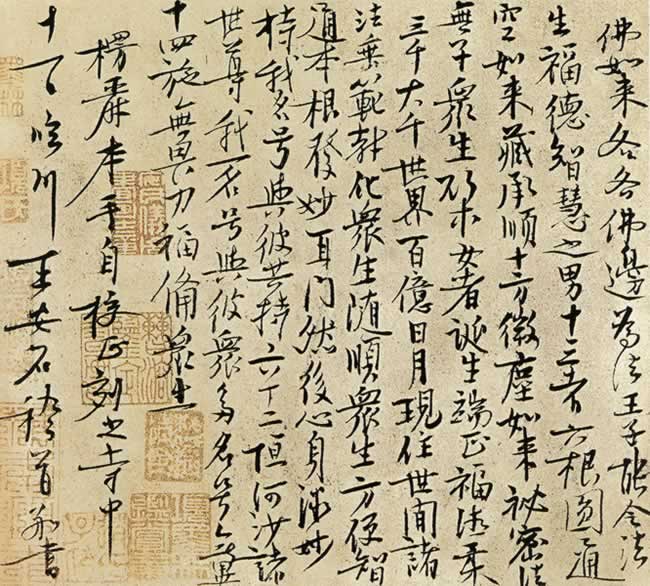 佛如來各各佛邊為法王子能令法
生福德智慧之男十三者六根圓通
空如來藏承順十方微塵如來祕密法
無子眾生欲求女者誕生端正福德柔
三千大千世界百億日月現住世間諸
法垂範教化眾生隨順眾生方便智
通本根發妙耳門然後心身微妙
持我名號與彼共持六十二恒河沙諸
世尊我一名號與彼眾多名號無異
十四施無畏力福備眾生
楞嚴本手自校正刻之寺中
十一日臨川王安石稽首敬書